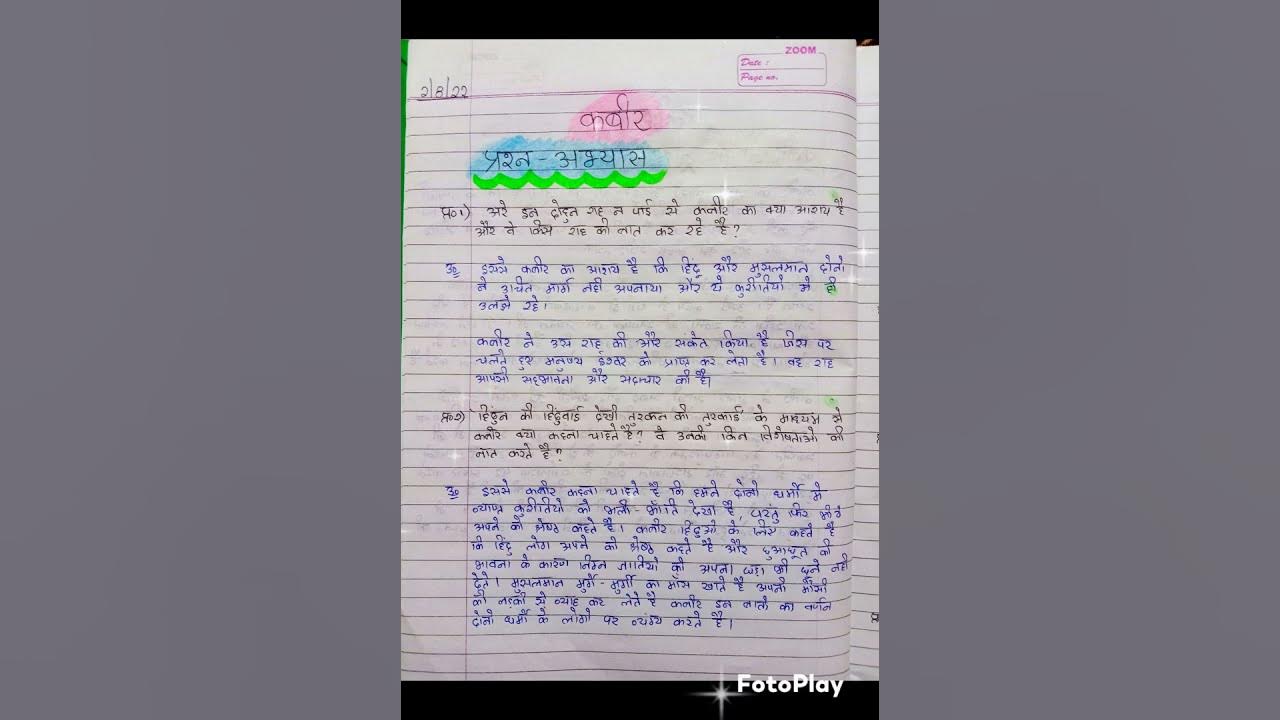 ZOOM
Date :
Page no.
2/8/22
कबीर
प्रश्न - अभ्यास
प्र०1) अरे इन दोहुन राह न पाई से कबीर का क्या आशय है
और वे किस राह की बात कर रहे है?
उ० इससे कबीर का आशय है कि हिंदू और मुसलमान दोनो
ने उचित मार्ग नही अपनाया और ये कुरीतियो मे ही
उलझे रहे।
कबीर ने उस राह की और संकेत किया है जिस पर
चलते हुए मनुष्य ईश्वर को प्राप्त कर लेता है। वह राह
आपसी सद्भावना और सदाचार की है।
प्र०2) हिंदुन की हिंदुवाई देखी तुरकन की तुरकाई के माध्यम से
कबीर क्या कहना चाहते है? वे उनकी किन विशेषताओ की
बात करते है?
उ० इससे कबीर कहना चाहते है कि हमने दोनो धर्मो मे
व्याप्त कुरीतियो को भली-भाँति देखा है परंतु फिर भी वे
अपने को श्रेष्ठ कहते है। कबीर हिंदुओ के लिए कहते है
कि हिंदु लोग अपने को श्रेष्ठ कहते है और छुआछूत की
भावना के कारण निम्न जातियो को अपना घड़ा भी छूने नही
देते। मुसलमान मुर्गे-मुर्गी का माँस खाते है अपनी मौसी
की लड़की से ब्याह कर लेते है कबीर इन बातो का वर्णन
दोनो धर्मो के लोगो पर व्यंग्य करते है।
FotoPlay